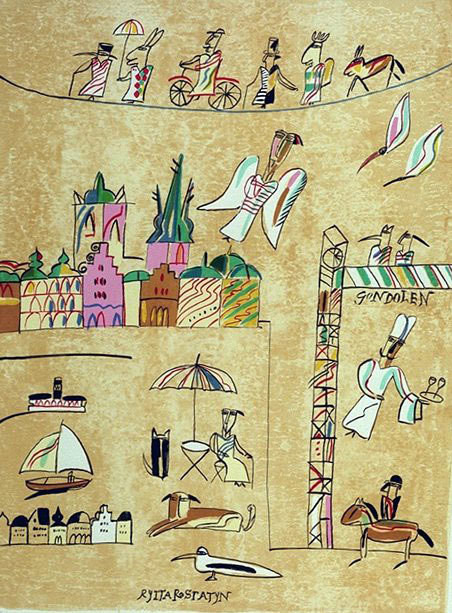 GONDOLEN
RYTTARSTATYN